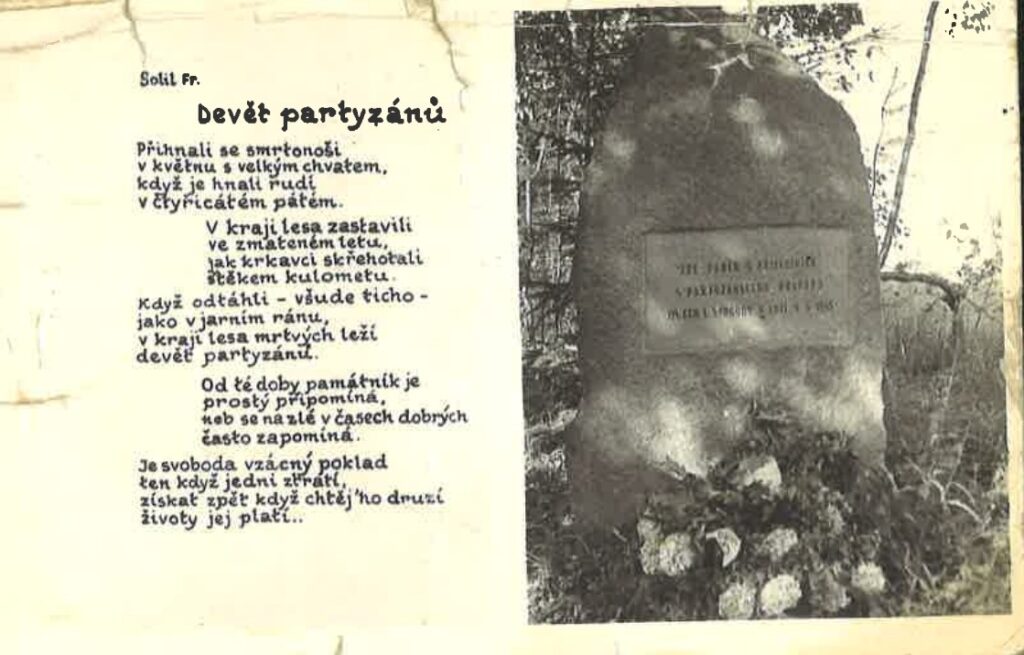 Solil Fr.
Devět partyzánů
Přihnali se smrtonoši
v květnu s velkým chvatem,
když je hnali rudí
v čtyřicátém pátém.
V kraji lesa zastavili
ve zmateném letu,
jak krkavci skřehotali
štěkem kulometu.
Když odtáhli - všude ticho -
jako v jarním ránu,
v kraji lesa mrtvých leží
devět partyzánů.
Od té doby památník je
prostý připomíná,
neb se na zlé v časech dobrých
často zapomíná.
Je svoboda vzácný poklad
ten když jedni ztratí,
získat zpět když chtěj'ho druzí
životy jej platí..
ZDE PADLO 9 PŘÍSLUŠNÍKŮ